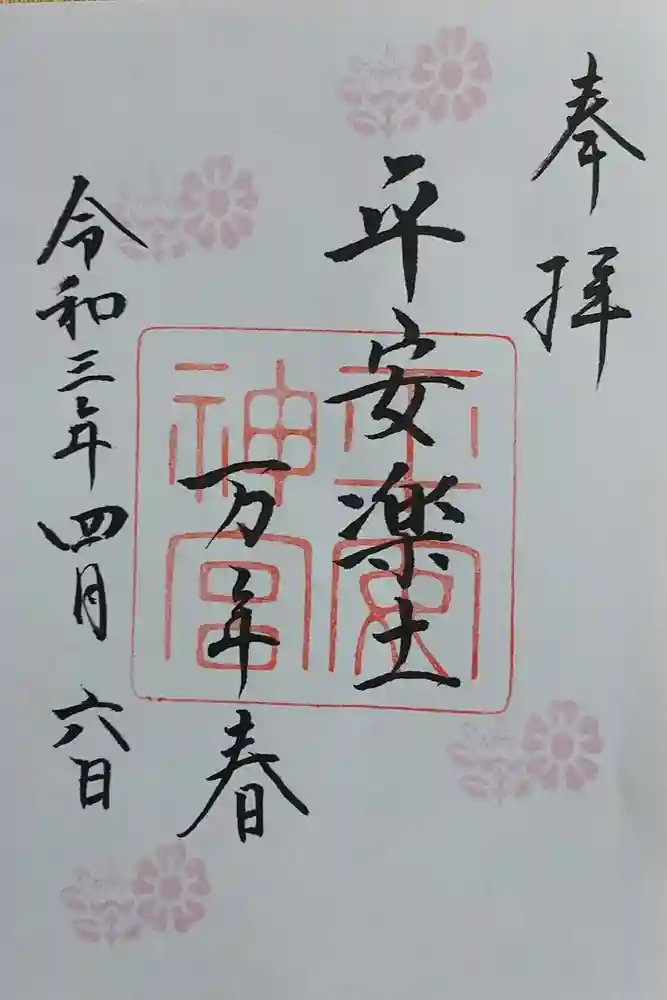 奉拝
平安楽土
万年春
平安
神宮
令和三年四月六日